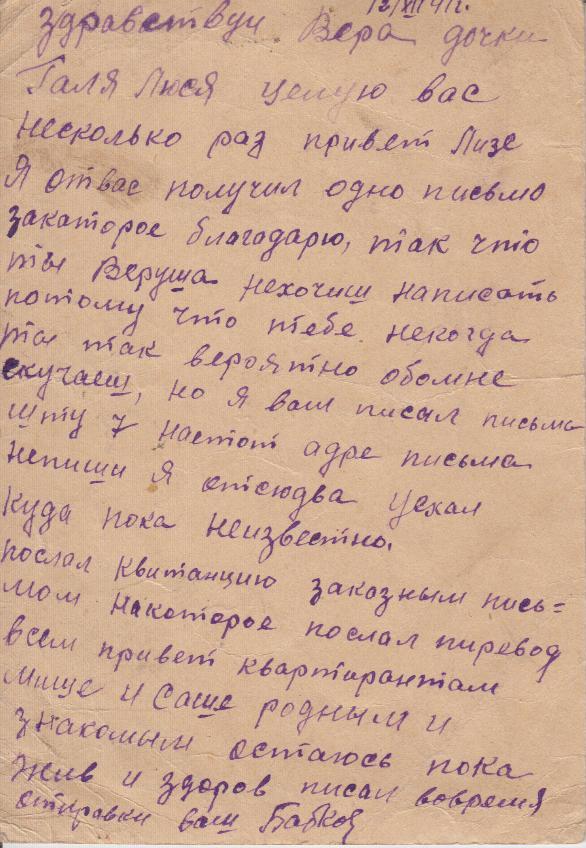 12/XII 41г.
здравствуй Вера дочки
Галя Люся целую вас
несколько раз привет Лизе
Я отвас получил одно письмо
закаторое благодарю, так что
ты Веруша нехочиш написать
потому что тебе некогда
ты так вероятно обомне
скучаеш, но я вам писал письма
шту 7 настот адре письма
непиши я отсюдва уехал
куда пока неизвестно.
послал квитанцию заказным пись=
мом накоторое послал пиревод
всем привет квартирантам
мише и Саше родным и
знакомым остаюсь пока
жив и здоров писал вовремя
отправки ваш